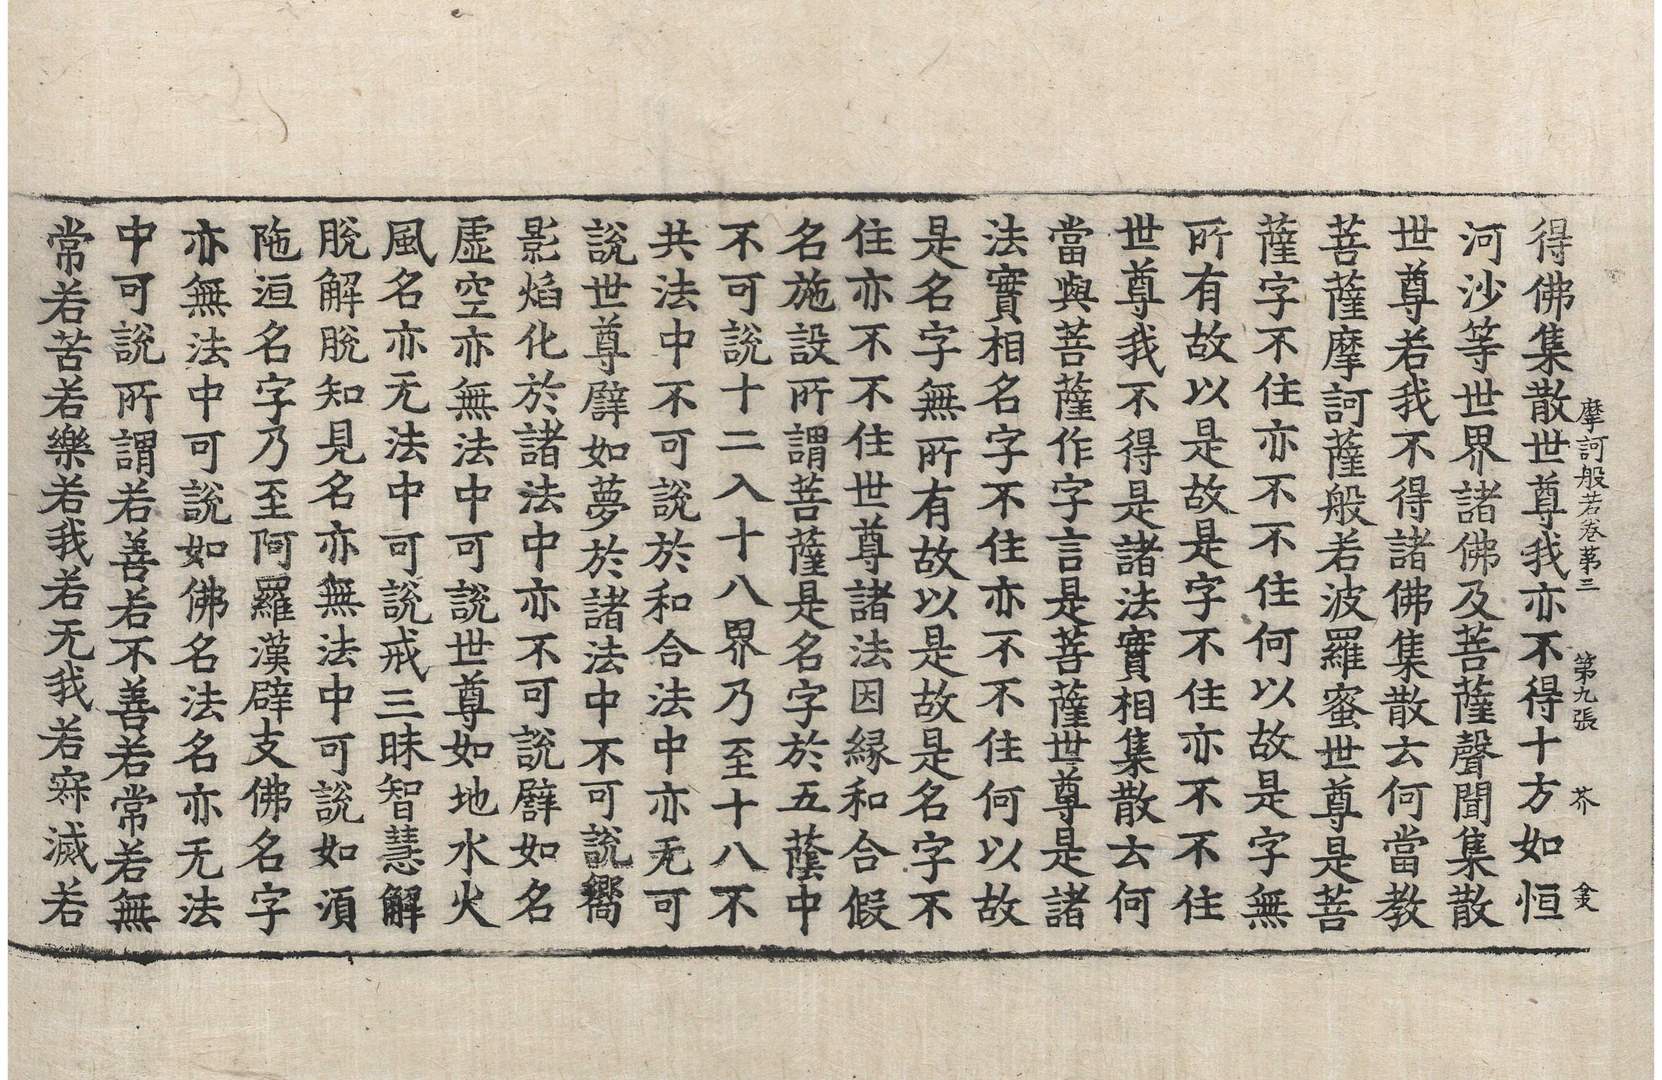 摩訶般若卷第三 第九張 芥
得佛集散世尊我亦不得十方如恒
河沙等世界諸佛及菩薩聲聞集散
世尊若我不得諸佛集散云何當教
菩薩摩訶薩般若波羅蜜世尊是菩
薩字不住亦不不住何以故是字無
所有故以是故是字不住亦不不住
世尊我不得是諸法實相集散云何
當與菩薩作字言是菩薩世尊是諸
法實相名字不住亦不不住何以故
是名字無所有故以是故是名字不
住亦不不住世尊諸法因緣和合假
名施設所謂菩薩是名字於五蔭中
不可說十二入十八界乃至十八不
共法中不可說於和合法中亦无可
說世尊譬如夢於諸法中不可說嚮
影焰化於諸法中亦不可說譬如名
虛空亦無法中可說世尊如地水火
風名亦无法中可說戒三昧智慧解
脫解脫知見名亦無法中可說如須
陁洹名字乃至阿羅漢辟支佛名字
亦無法中可說如佛名法名亦无法
中可說所謂若善若不善若常若無
常若苦若樂若我若无我若寂滅若